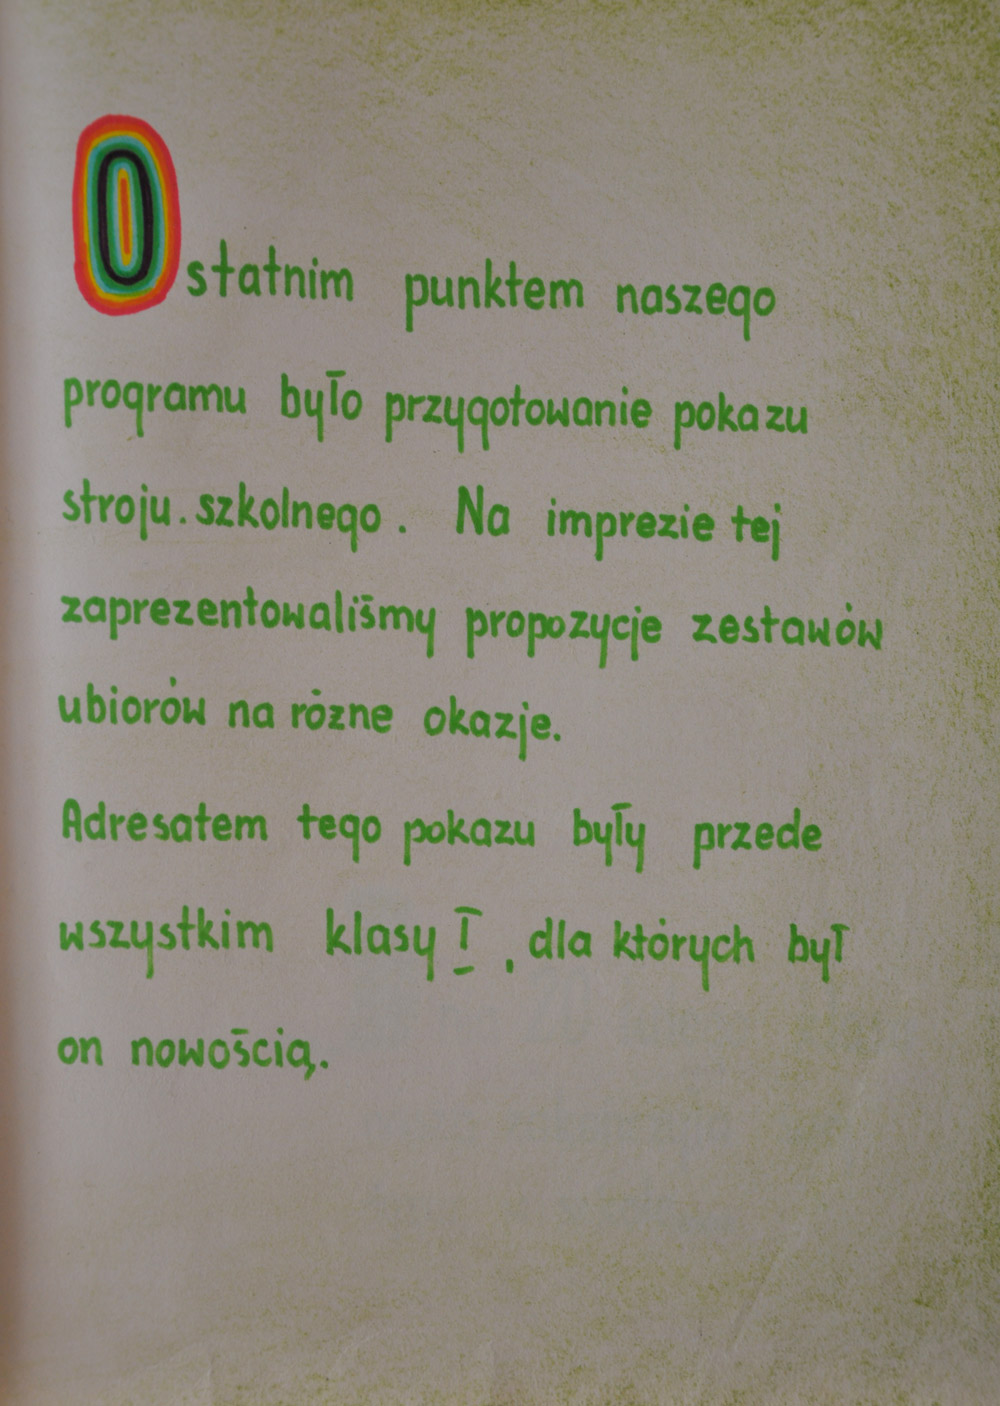 Ostatnim punktem naszego
programu było przygotowanie pokazu
stroju.szkolnego. Na imprezie tej
zaprezentowaliśmy propozycje zestawów
ubiorów na różne okazje.
Adresatem tego pokazu były przede
wszystkim klasy I, dla których był
on nowością.